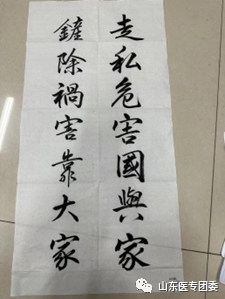 走私危害國與家
鏟除禍害靠大家
山东医专团委